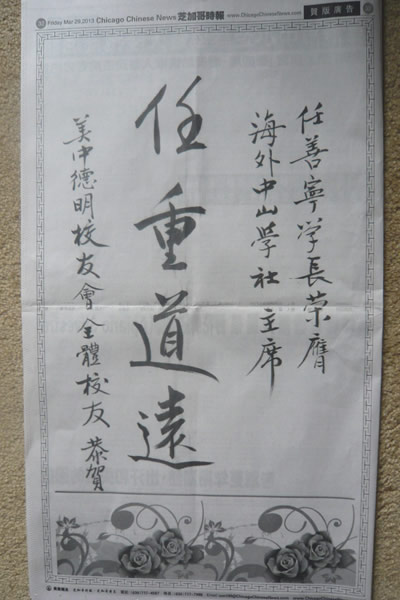 32 Friday Mar 29, 2013 Chicago Chinese News 芝加哥時報 www.ChicagoChineseNews.com 賀版廣告
任善寧学長荣膺
海外中山學社主席
任重道遠
美中德明校友會全體校友 恭賀